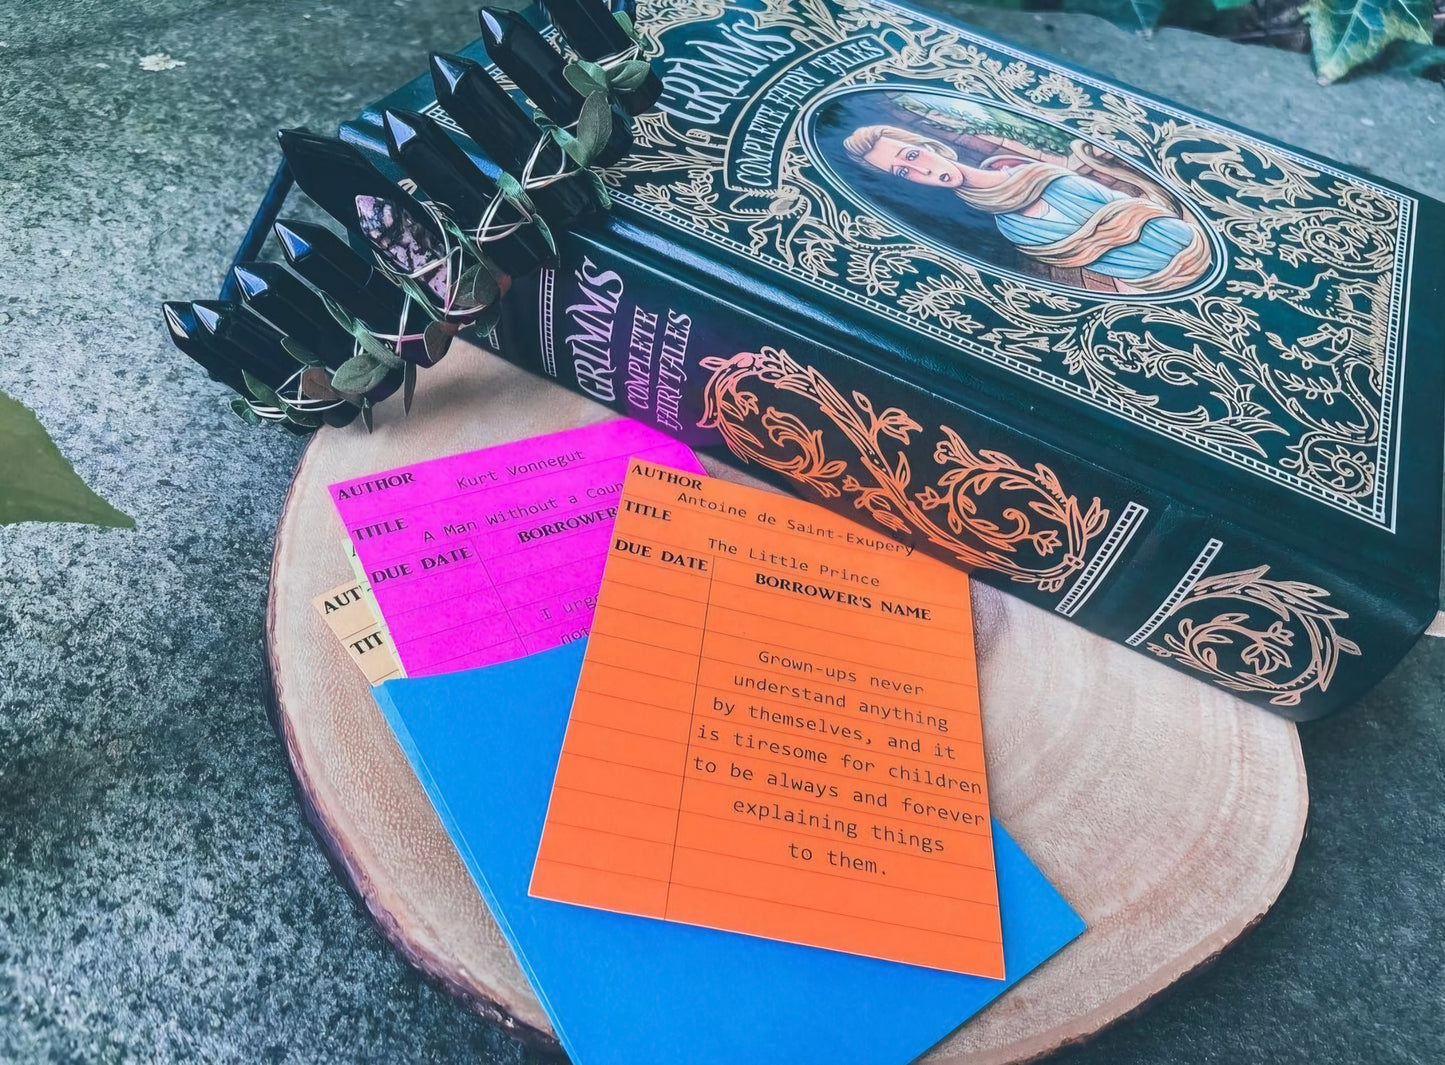 GRIMM'S
COMPLETE FAIRY TALES
GRIMM'S
COMPLETE
FAIRY TALES
AUTHOR Kurt Vonnegut
TITLE A Man Without a
DUE DATE BORROWER'S
I
not
AUTHOR
Antoine de Saint-Exupery
TITLE
The Little Prince
DUE DATE BORROWER'S NAME
Grown-ups never
understand anything
by themselves, and it
is tiresome for children
to be always and forever
explaining things
to them.